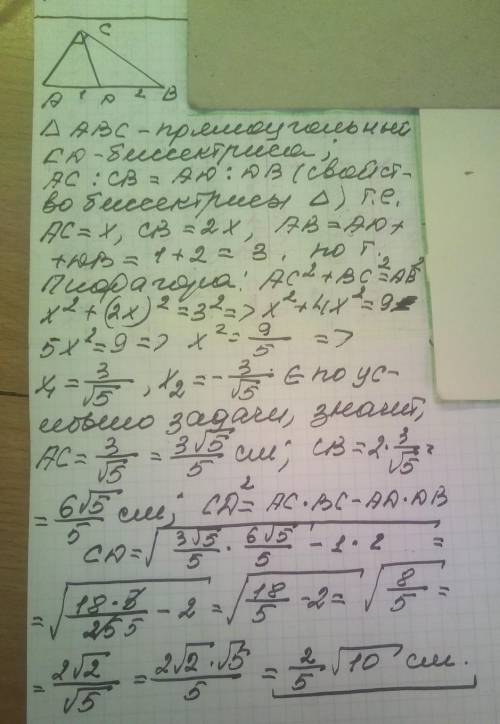 C
A 1 D 2 B
Δ ABC – прямоугольный
CD – биссектриса;
AC : CB = AD : DB (свойст-
во биссектрисы Δ) т.е.
AC = x, CB = 2x, AB = AD +
+ DB = 1 + 2 = 3. по т.
Пифагора: AC² + BC² = AB²
x² + (2x)² = 3² => x² + 4x² = 9
5x² = 9 => x² = 9/5 =>
x₁ = 3/√5, x₂ = -3/√5 ∈ по ус-
ловию задачи, значит,
AC = 3/√5 = 3√5/5 см; CB = 2·3/√5 =
= 6√5/5 см; CD² = AC·BC – AD·DB
CD = √(3√5/5 · 6√5/5 – 1·2) =
= √(18·5/25 – 2) = √(18/5 – 2) = √(8/5) =
= 2√2/√5 = 2√2·√5/5 = 2/5 √10 см.